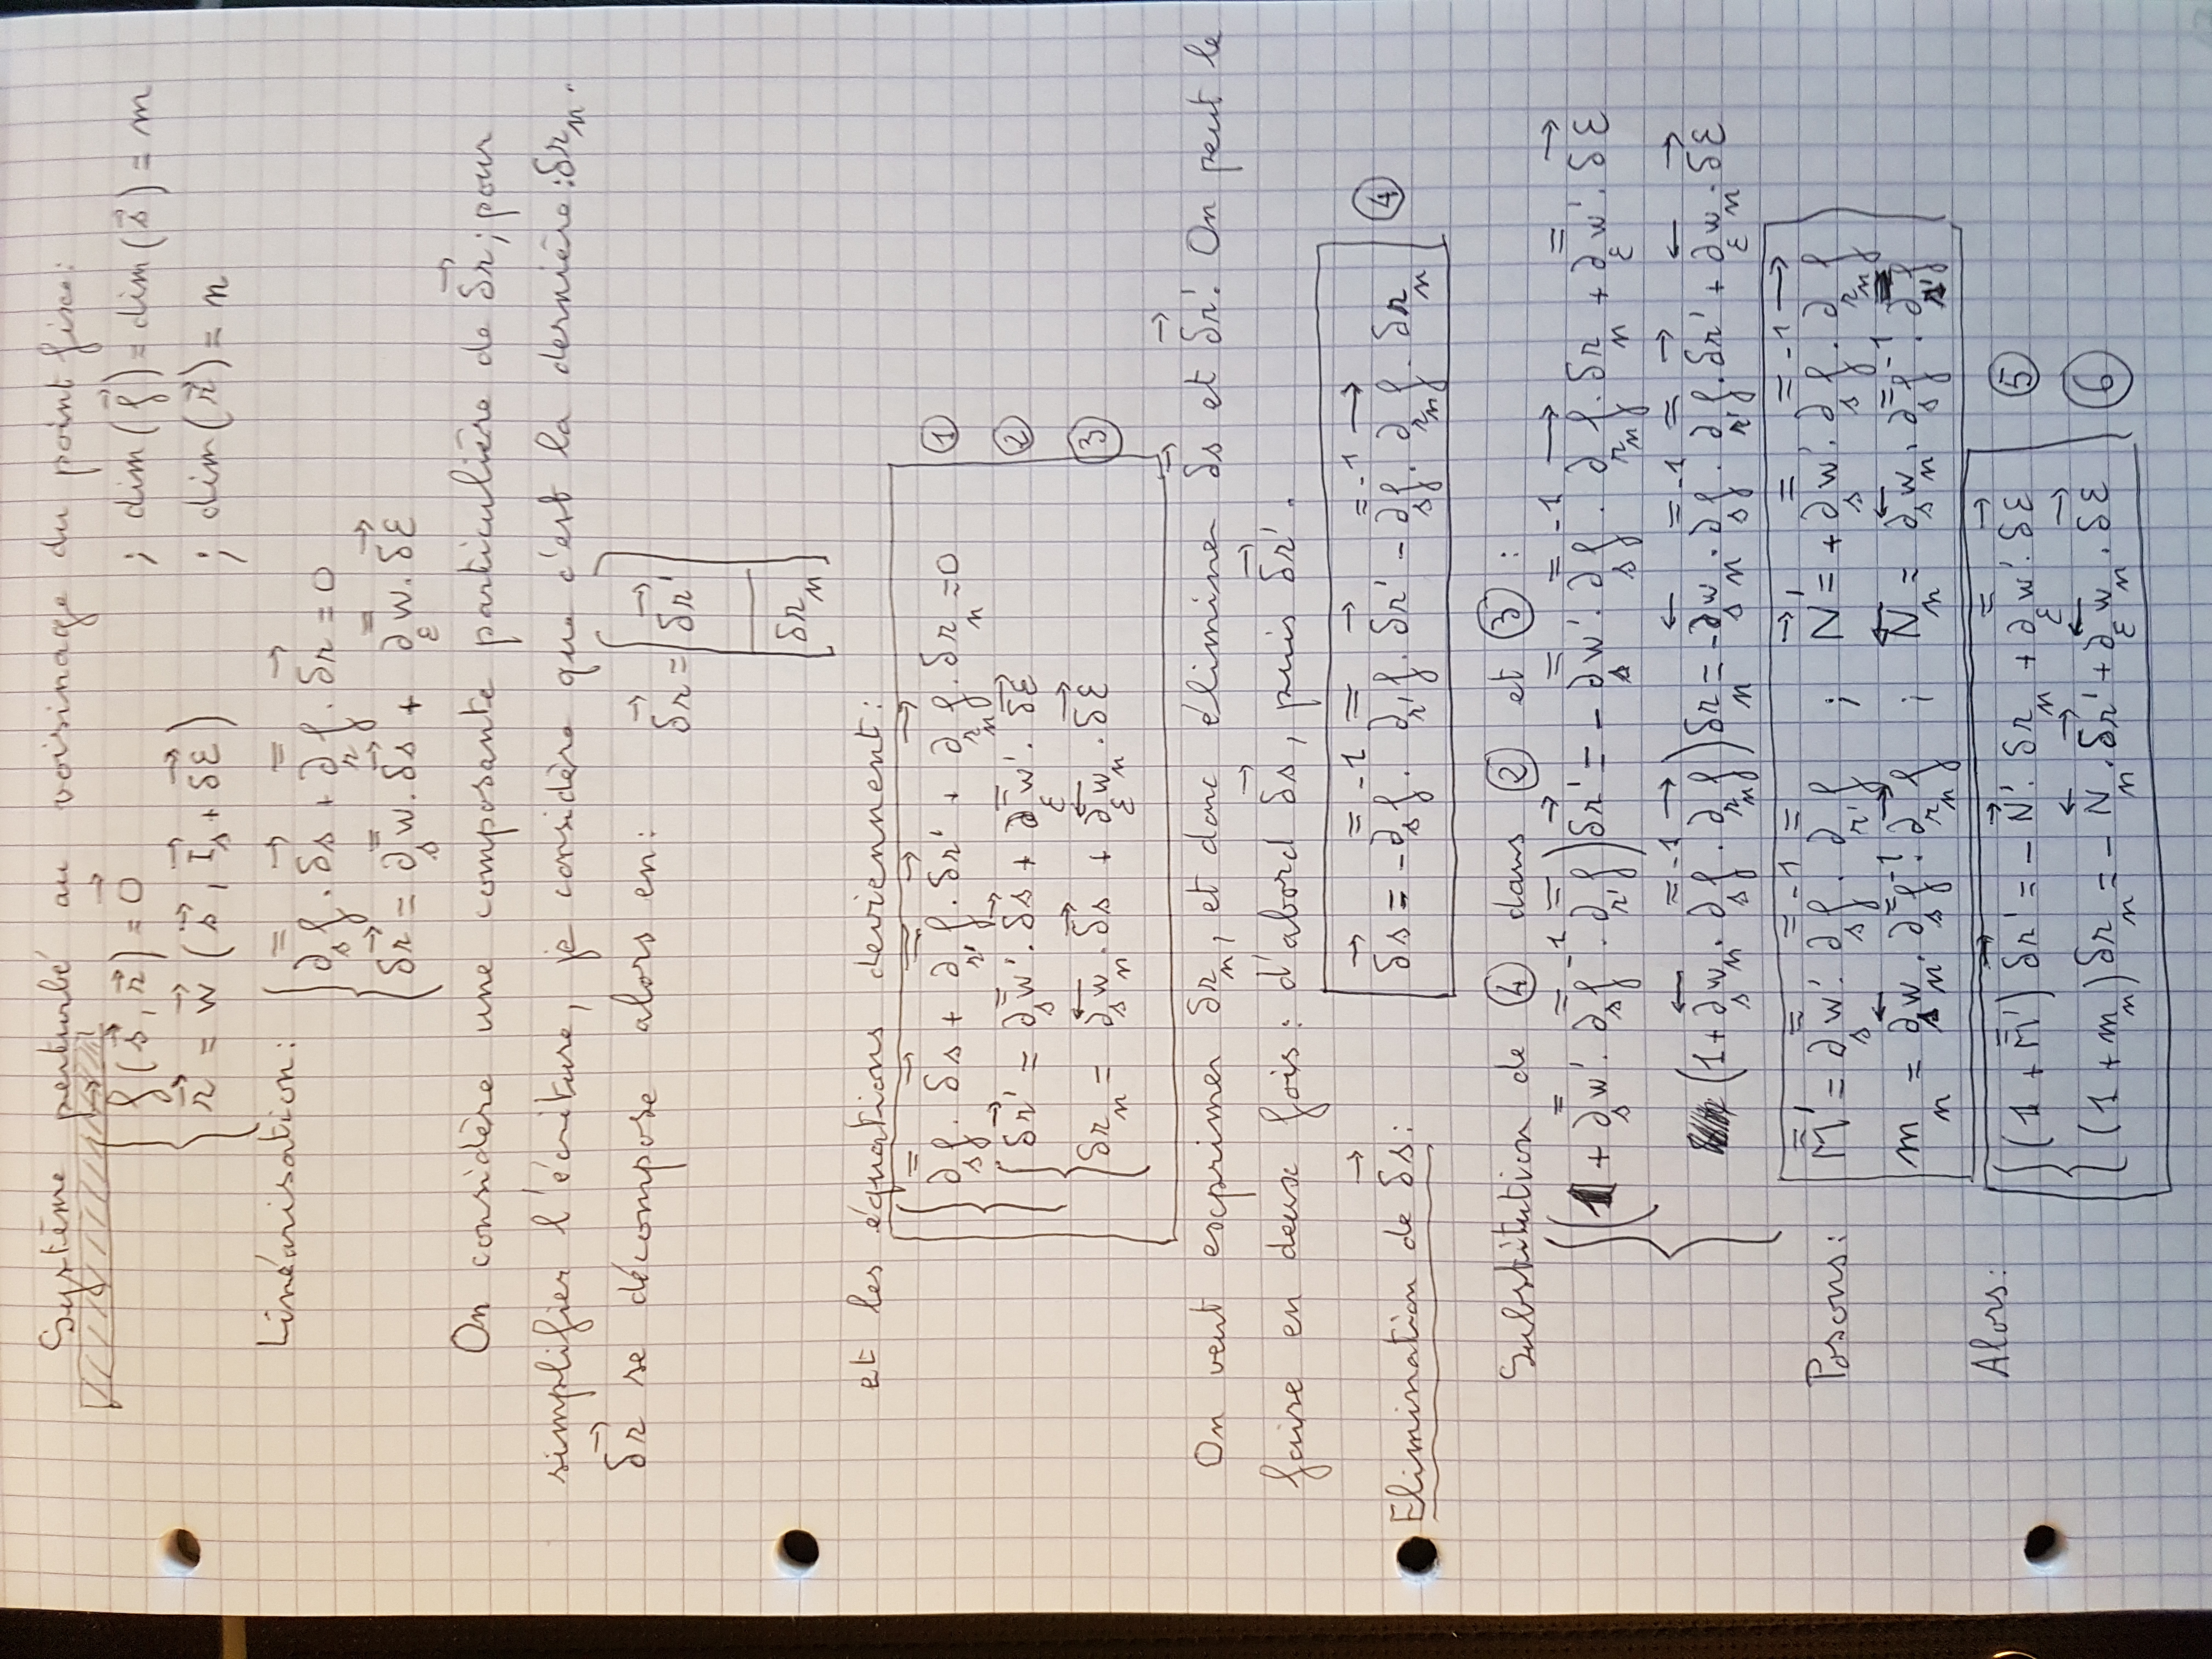 Système perturbé au voisinage du point fixe:
{ f⃗(s⃗, r⃗) = 0⃗ ; dim(f⃗) = dim(s⃗) = m
r⃗ = w⃗(s⃗, I⃗ₛ + δε⃗) ; dim(r⃗) = n
Linéarisation:
{ ∂̿ₛf . δs⃗ + ∂̿ᵣf . δr⃗ = 0
δr⃗ = ∂̿ₛw . δs⃗ + ∂̿_εw . δε⃗
On considère une composante particulière de δr⃗ ; pour
simplifier l'écriture, je considère que c'est la dernière : δrₙ.
δr⃗ se décompose alors en: δr⃗ = [ δr⃗' / δrₙ ]
et les équations deviennent:
{ ∂̿ₛf . δs⃗ + ∂̿_r'f . δr⃗' + ∂⃗_rₙf . δrₙ = 0 ①
δr⃗' = ∂̿ₛw' . δs⃗ + ∂̿_εw' . δε⃗ ②
δrₙ = ∂⃖ₛwₙ . δs⃗ + ∂⃖_εwₙ . δε⃗ ③
On veut exprimer δrₙ, et donc éliminer δs⃗ et δr⃗'. On peut le
faire en deux fois : d'abord δs⃗, puis δr⃗'.
Elimination de δs⃗:
δs⃗ = - ∂̿ₛf⁻¹ . ∂̿_r'f . δr⃗' - ∂̿ₛf⁻¹ . ∂⃗_rₙf . δrₙ ④
Substitution de ④ dans ② et ③ :
{ (1 + ∂̿ₛw' . ∂̿ₛf⁻¹ . ∂̿_r'f) δr⃗' = - ∂̿ₛw' . ∂̿ₛf⁻¹ . ∂⃗_rₙf . δrₙ + ∂̿_εw' . δε⃗
(1 + ∂⃖ₛwₙ . ∂̿ₛf⁻¹ . ∂⃗_rₙf) δrₙ = - ∂⃖ₛwₙ . ∂̿ₛf⁻¹ . ∂̿_r'f . δr⃗' + ∂⃖_εwₙ . δε⃗
Posons: M̿' = ∂̿ₛw' . ∂̿ₛf⁻¹ . ∂̿_r'f ; N⃗' = + ∂̿ₛw' . ∂̿ₛf⁻¹ . ∂⃗_rₙf
mₙ = ∂⃖ₛwₙ . ∂̿ₛf⁻¹ . ∂⃗_rₙf ; N⃖ₙ = ∂⃖ₛwₙ . ∂̿ₛf⁻¹ . ∂̿_r'f
Alors: { (1 + M̿') δr⃗' = - N⃗' . δrₙ + ∂̿_εw' . δε⃗ ⑤
(1 + mₙ) δrₙ = - N⃖ₙ . δr⃗' + ∂⃖_εwₙ . δε⃗ ⑥